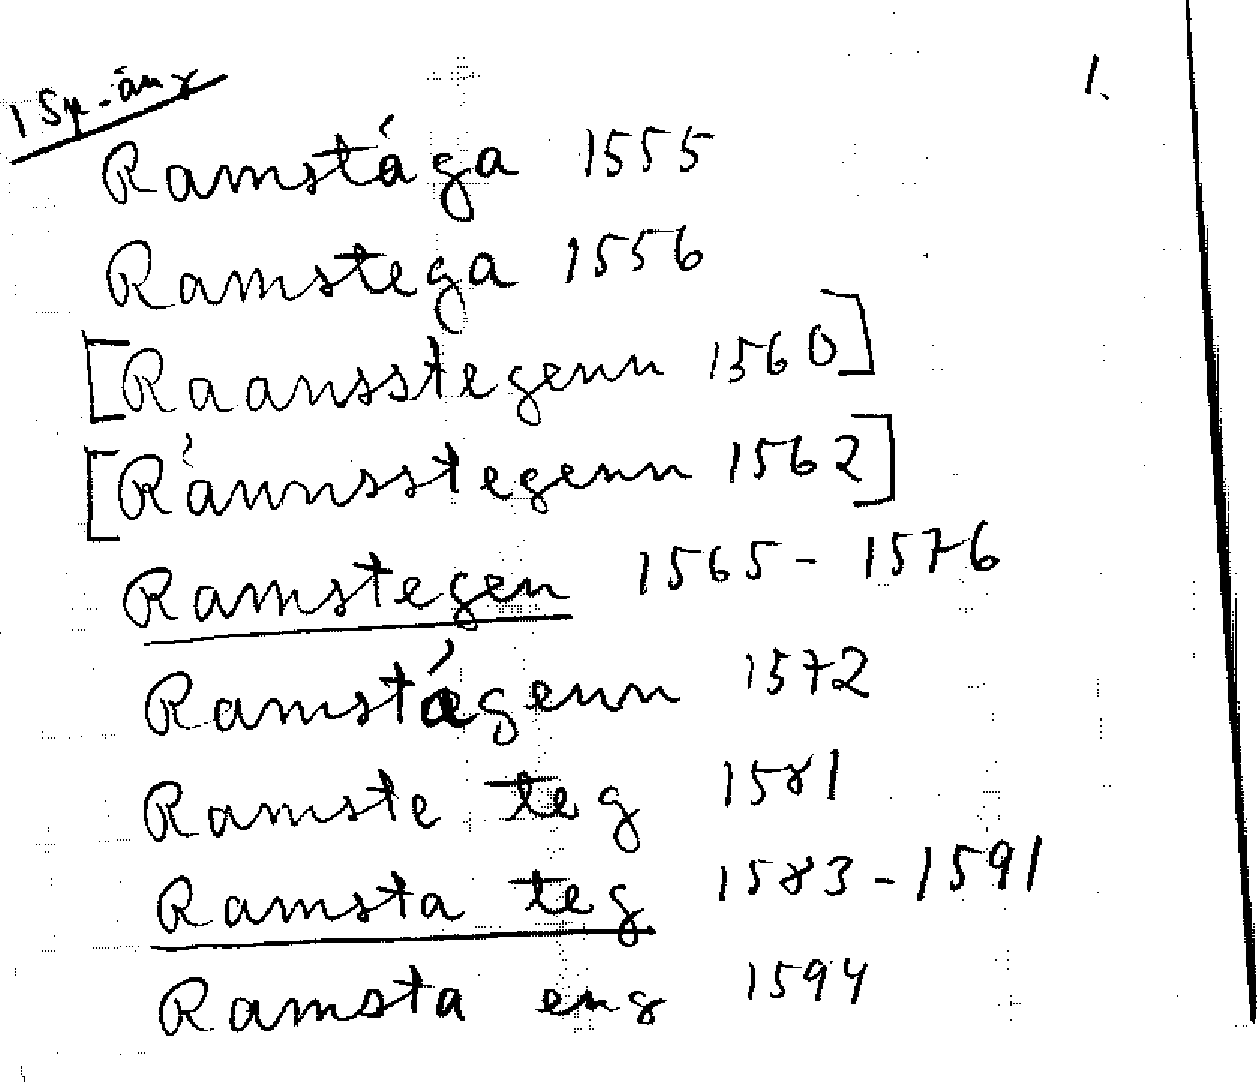 1 Sp-äng 1.
Ramstága 1555
Ramstega 1556
[Raansstegenn 1560]
[Ránnsstegenn 1562]
Ramstegen 1565 - 1576
Ramstágenn 1572
Ramste teg 1581
Ramsta teg 1583 - 1591
Ramsta eng 1594